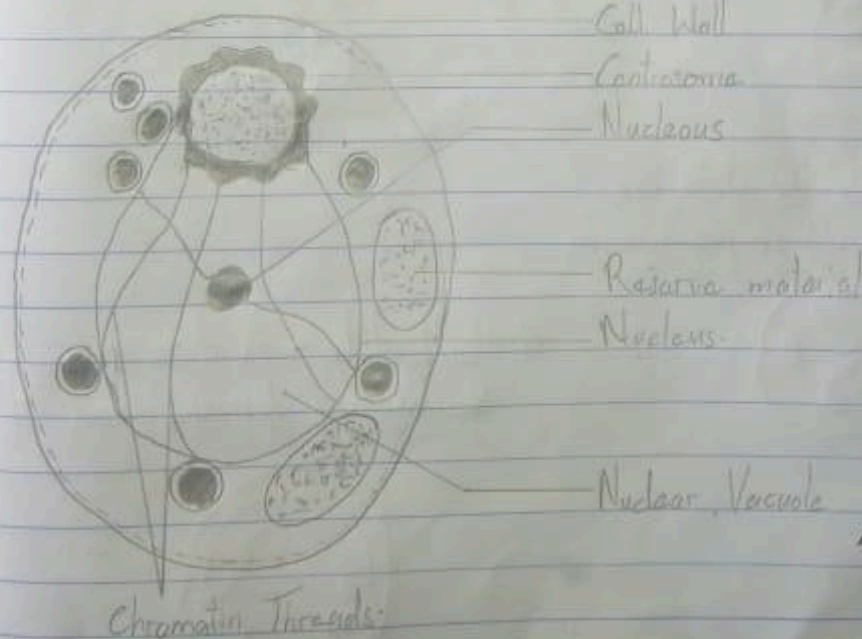 Cell Wall
Centrosome
Nucleous
Reserve material
Nucleus.
Nuclear Vacuole
Chromatin Threads.